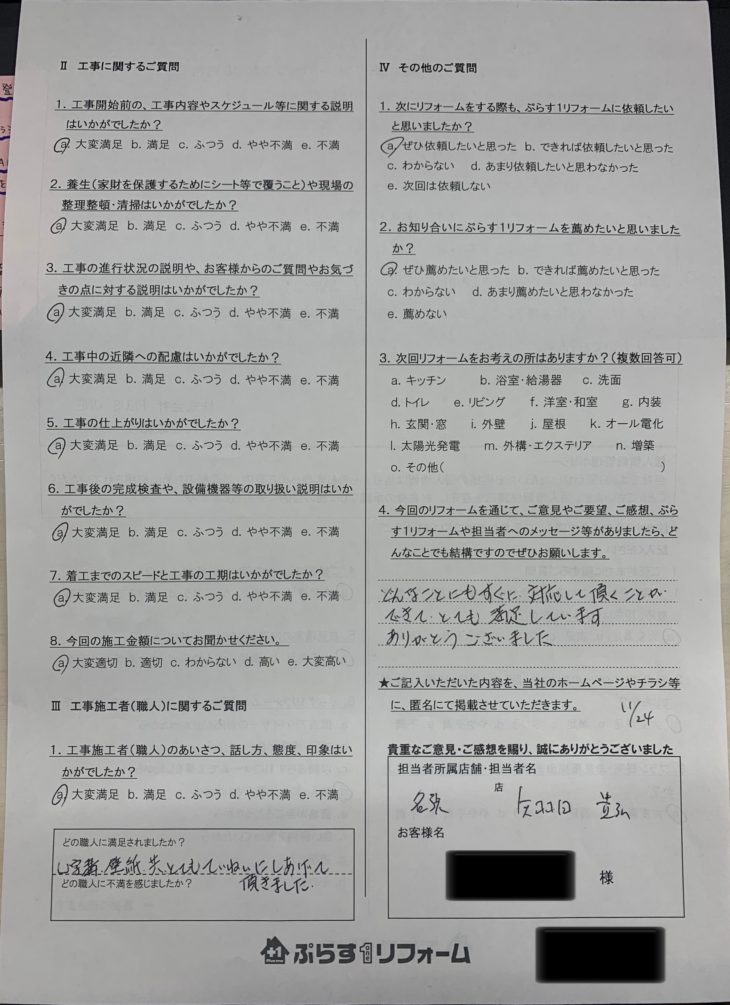 Ⅱ 工事に関するご質問
1. 工事開始前の、工事内容やスケジュール等に関する説明
はいかがでしたか？
a. 大変満足 b. 満足 c. ふつう d. やや不満 e. 不満
2. 養生(家財を保護するためにシート等で覆うこと)や現場の
整理整頓・清掃はいかがでしたか？
a. 大変満足 b. 満足 c. ふつう d. やや不満 e. 不満
3. 工事の進行状況の説明や、お客様からのご質問やお気づ
きの点に対する説明はいかがでしたか？
a. 大変満足 b. 満足 c. ふつう d. やや不満 e. 不満
4. 工事中の近隣への配慮はいかがでしたか？
a. 大変満足 b. 満足 c. ふつう d. やや不満 e. 不満
5. 工事の仕上がりはいかがでしたか？
a. 大変満足 b. 満足 c. ふつう d. やや不満 e. 不満
6. 工事後の完成検査や、設備機器等の取り扱い説明はいか
がでしたか？
a. 大変満足 b. 満足 c. ふつう d. やや不満 e. 不満
7. 着工までのスピードと工事の工期はいかがでしたか？
a. 大変満足 b. 満足 c. ふつう d. やや不満 e. 不満
8. 今回の施工金額についてお聞かせください。
a. 大変適切 b. 適切 c. わからない d. 高い e. 大変高い
Ⅲ 工事施工者(職人)に関するご質問
1. 工事施工者(職人)のあいさつ、話し方、態度、印象はい
かがでしたか？
a. 大変満足 b. 満足 c. ふつう d. やや不満 e. 不満
どの職人に満足されましたか？
壁紙 とてもていねいにしあげて
どの職人に不満を感じましたか？
頂きました.
Ⅳ その他のご質問
1. 次にリフォームをする際も、ぷらす1リフォームに依頼したい
と思いましたか？
a. ぜひ依頼したいと思った b. できれば依頼したいと思った
c. わからない d. あまり依頼したいと思わなかった
e. 次回は依頼しない
2. お知り合いにぷらす1リフォームを薦めたいと思いました
か？
a. ぜひ薦めたいと思った b. できれば薦めたいと思った
c. わからない d. あまり薦めたいと思わなかった
e. 薦めない
3. 次回リフォームをお考えの所はありますか？(複数回答可)
a. キッチン b. 浴室・給湯器 c. 洗面
d. トイレ e. リビング f. 洋室・和室 g. 内装
h. 玄関・窓 i. 外壁 j. 屋根 k. オール電化
l. 太陽光発電 m. 外構・エクステリア n. 増築
o. その他( )
4. 今回のリフォームを通じて、ご意見やご要望、ご感想、ぷら
す1リフォームや担当者へのメッセージ等がありましたら、ど
んなことでも結構ですのでぜひお願いします。
どんなことにもすぐに 対応して頂くことが
できて とても 満足しています
ありがとう ございました
★ご記入いただいた内容を、当社のホームページやチラシ等
に、匿名にて掲載させていただきます。
11/24
貴重なご意見・ご感想を賜り、誠にありがとうございました
担当者所属店舗・担当者名
店
名張
お客様名
様
+1 ぷらす1リフォーム